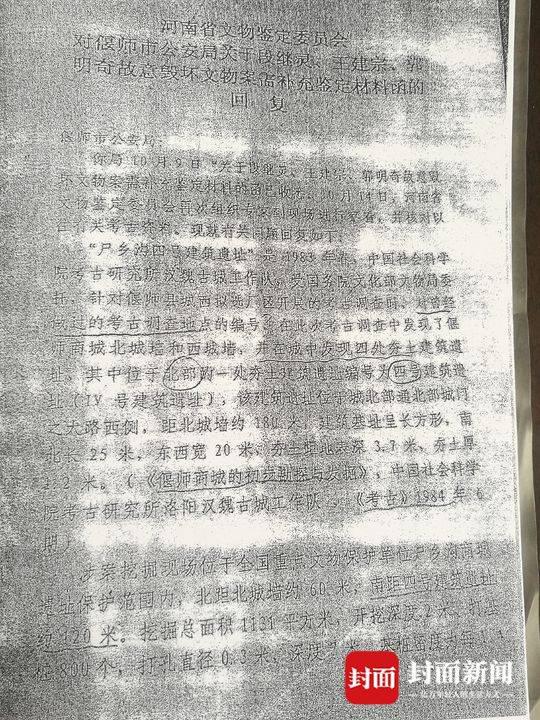 河南省文物鉴定委员会
对偃师市公安局关于段继灵、王建宗、郭
明奇故意毁坏文物案需补充鉴定材料函的
回 复
偃师市公安局:
你局10月9日"关于段继灵、王建宗、郭明奇故意毁
坏文物案需补充鉴定材料的函已收悉。10月14日,河南省
文物鉴定委员会再次组织专家到现场进行察看,并核对以
往有关考古资料,现就有关问题回复如下:
"尸乡沟四号建筑遗址"是1983年春,中国社会科学
院考古研究所汉魏古城工作队,受国务院文化部文物局委
托,针对偃师县城西拟选厂区开展的考古调查时,对曾经
做过的考古调查地点的编号。在此次考古调查中发现了偃
师商城北城墙和西城墙,并在城中发现四处夯土建筑遗
址。其中位于北部的一处夯土建筑遗址编号为四号建筑遗
址(IV号建筑遗址),该建筑遗址位于城北部通北部城门
之大路西侧,距北城墙约180米,建筑基址呈长方形,南
北长25米,东西宽20米,夯土距地表深3.7米,夯土厚
2米。(《偃师商城的初步勘探与发掘》,中国社会科学
院考古研究所洛阳汉魏古城工作队,《考古》1984年6
期)
涉案挖掘现场位于全国重点文物保护单位尸乡沟商城
遗址保护范围内,北距北城墙约60米,南距四号建筑遗址
约120米。挖掘总面积1131平方米,开挖深度2米,
桩800个,打孔直径0.3米,深度
封面 封面新闻
亿万年轻人的生活方式